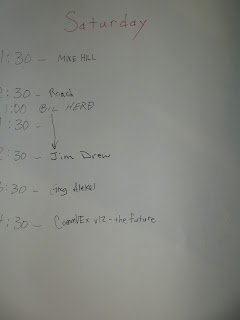 Saturday
1:30 - MIKE HILL
2:30 - Roach
1:00 BIL HERD
1:30 -
2:30 - Jim Drew
3:30 - Greg Alekel
4:30 - CommVEx v12 - the future